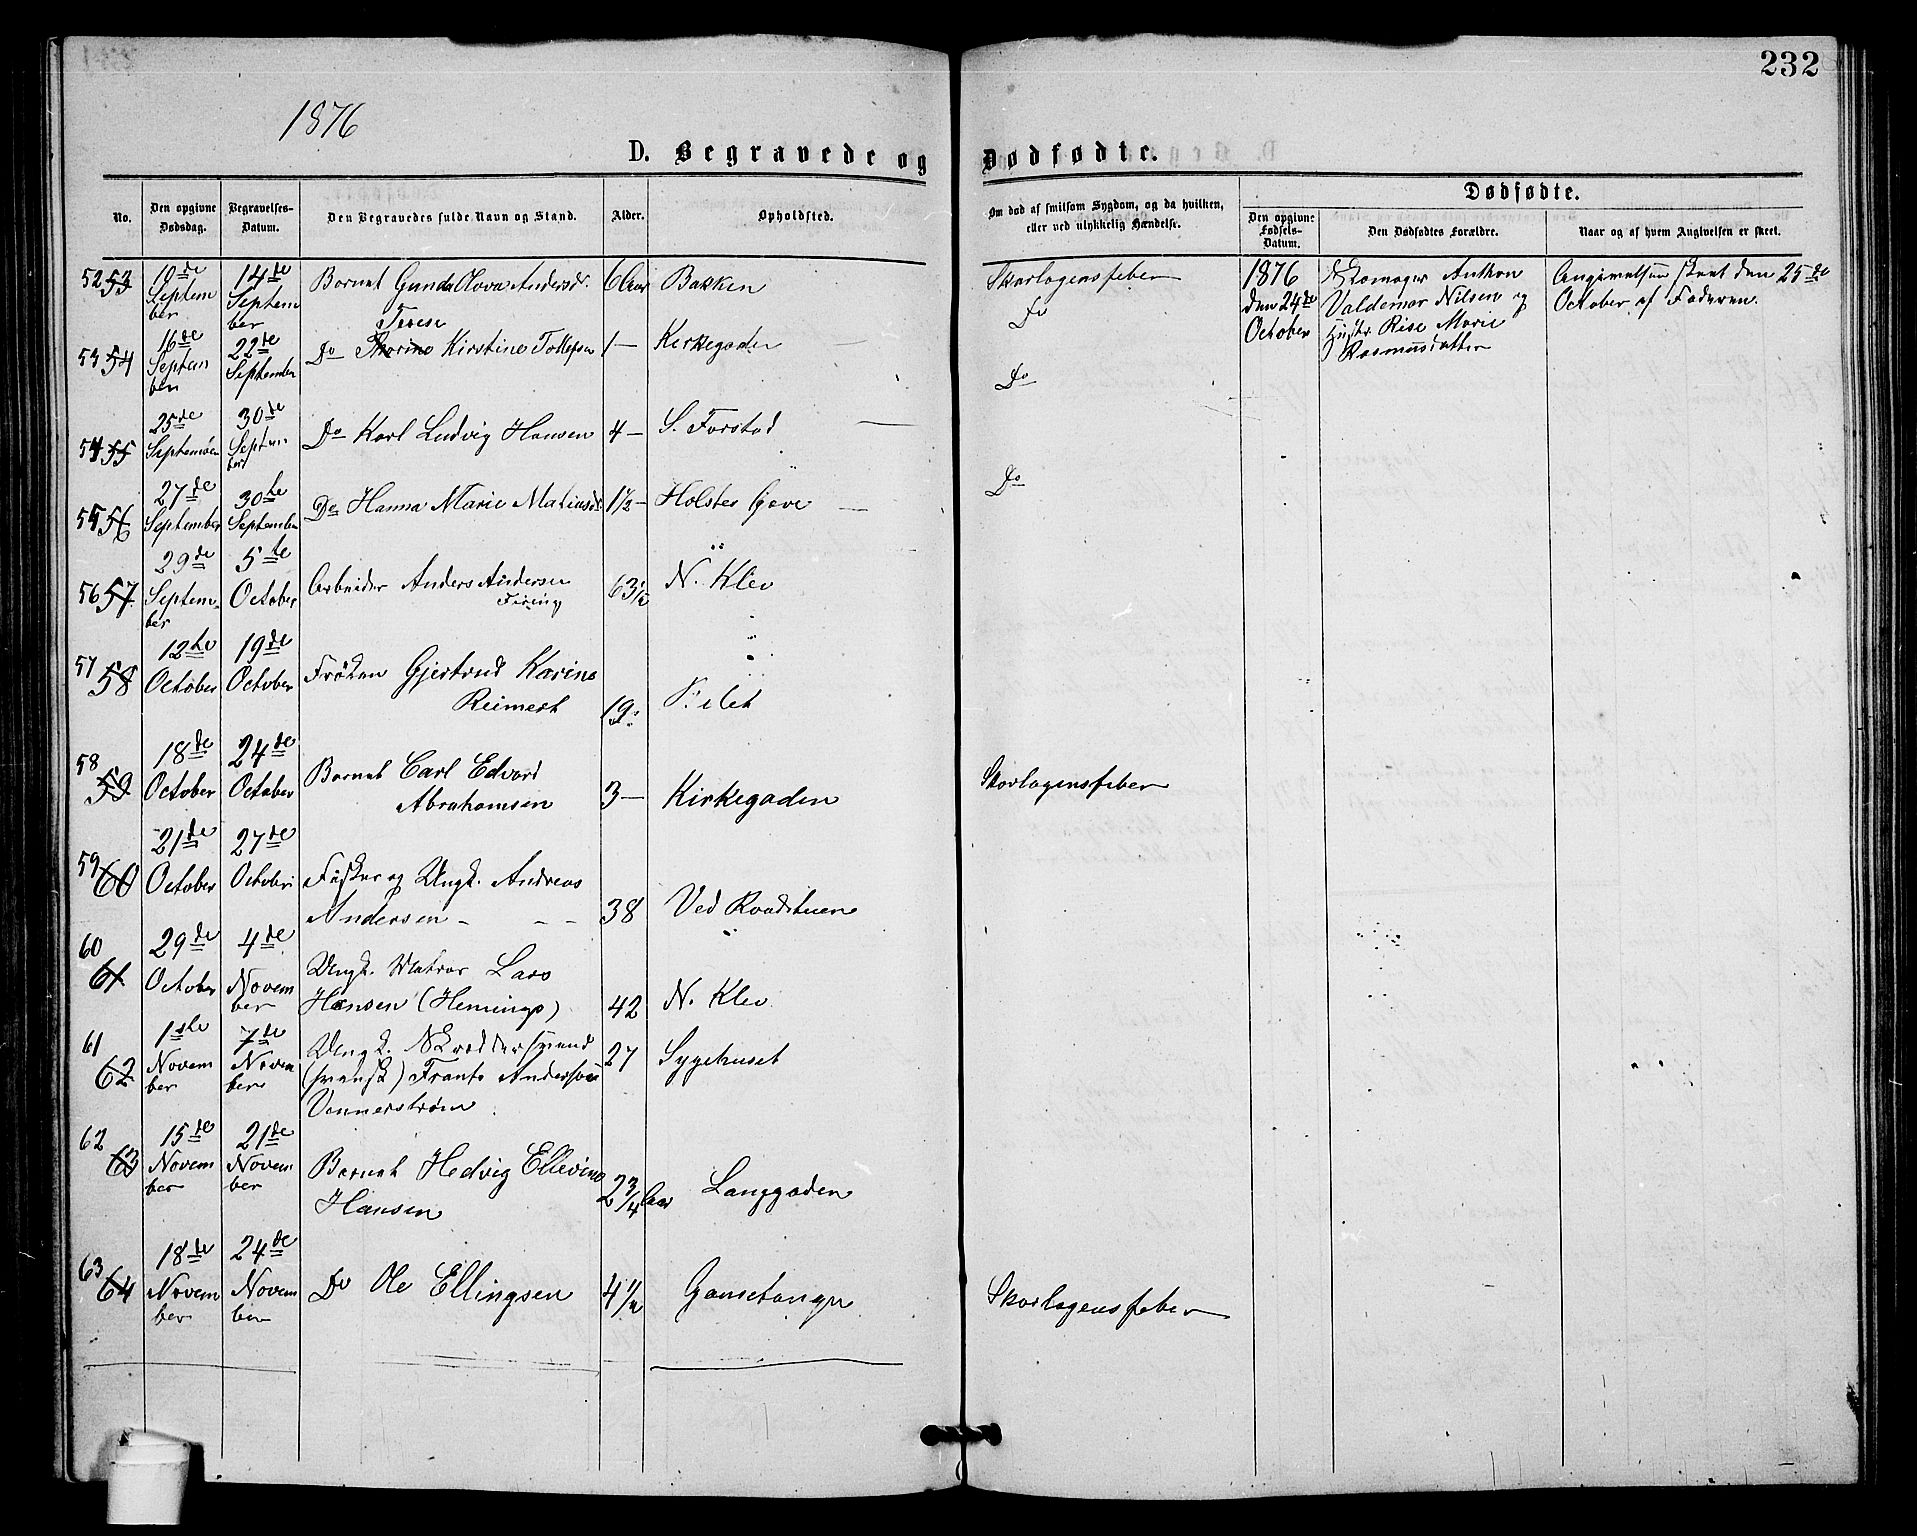 232
1876
D. Begravede og Dødfødte.
No.
Den opgivne Dødsdag.
Begravelses-Datum.
Den Begravedes fulde Navn og Stand.
Alder.
Opholdsted.
Om død af smitsom Sygdom, og da hvilken, eller ved ulykkelig Hændelse.
Dødfødte.
Den opgivne Fødsels-Datum.
Den Dødfødtes Forældre.
Naar og af hvem Angivelsen er skeet.
52 53 10de September 14de September Barnet Gunda Olova Andersdr. 6 Aar Bakken Skarlagensfeber
53 54 16de September 22de September Do Terese Kirstine Tollefsen 1 — Kirkegaden Do
54 55 25de September 30de September Do Karl Ludvig Hansen 4 — S. Forstad Do
55 56 27de September 30te September Do Hanna Marie Matiasdr 1½ — Holstes Gave Do
56 57 29de September 5te October Arbeider Anders Andersen 63½ N. Klev
57 58 12te October 19de October Frøken Gjertrud Karine
Reimert 19
58 59 18de October 24de October Barnet Carl Edvard
Abrahamsen 3 — Kirkegaden Skarlagensfeber
59 60 21de October 27de October Fisker og Ungk. Andreas
Andersen - - - 38 Ved Raadstuen
60 61 29de October 4de November Ungk. Matros Lars
Hansen (Hemings) 42 N. Klev
61 62 1ste November 7de November Ungk. Skræddersvend 27 Sygehuset
(svensk) Frants Anderson
Vennerstrøm
62 63 15de November 21de November Barnet Hedvig Ellevine
Hansen 2 3/4 Aar Langgaden
63 64 18de November 24de November Do Ole Ellingsen 4½ Skarlagensfeber
1876 Skomager Anthon Angivelsen skeet den 25de
den 24de Valdemar Nilsen og October af Faderen.
October Hustr. Rise Marie
Rasmusdatter